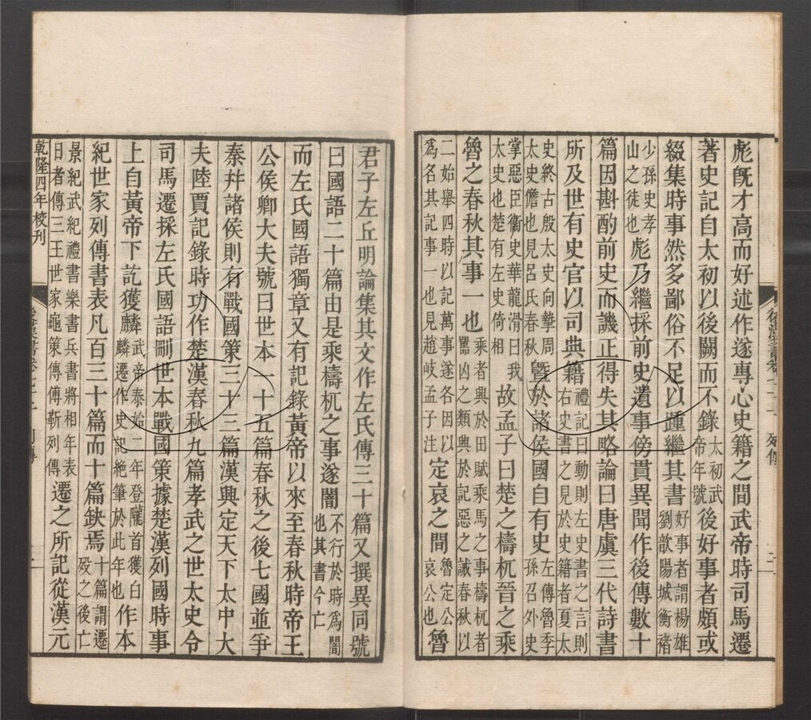 彪旣才高而好述作遂專心史籍之間武帝時司馬遷
著史記自太初以後闕而不錄太初武帝年號後好事者頗或
綴集時事然多鄙俗不足以踵繼其書好事者謂楊雄劉歆陽城衡褚
少孫史孝山之徒也彪乃繼採前史遺事傍貫異聞作後傳數十
篇因斟酌前史而譏正得失其略論曰唐虞三代詩書
所及世有史官以司典籍禮記曰動則左史書之言則右史書之見於史籍者夏太
史終古殷太史向摯周太史儋也見呂氏春秋曁於諸侯國自有史左傳魯季孫召外史
掌惡臣衞史華龍滑曰我太史也楚有左史倚相故孟子曰楚之檮杌晉之乘
魯之春秋其事一也乘者興於田賦乘馬之事檮杌者嚚凶之類興於記惡之誡春秋以
二始舉四時以記萬事遂各因以為名其記事一也見趙岐孟子注定哀之間魯定公哀公也魯
君子左丘明論集其文作左氏傳三十篇又撰異同號
曰國語二十篇由是乘檮杌之事遂闇不行於時為闇也其書今亡
而左氏國語獨章又有記錄黃帝以來至春秋時帝王
公侯卿大夫號曰世本一十五篇春秋之後七國並爭
秦幷諸侯則有戰國策三十三篇漢興定天下太中大
夫陸賈記錄時功作楚漢春秋九篇孝武之世太史令
司馬遷採左氏國語刪世本戰國策據楚漢列國時事
上自黃帝下訖獲麟武帝泰始二年登隴首獲白麟遷作史記絶筆於此年也作本
紀世家列傳書表凡百三十篇而十篇缺焉十篇謂遷歿之後亡
景紀武紀禮書樂書兵書將相年表日者傳三王世家龜策傳傅靳列傳遷之所記從漢元
乾隆四年校刊